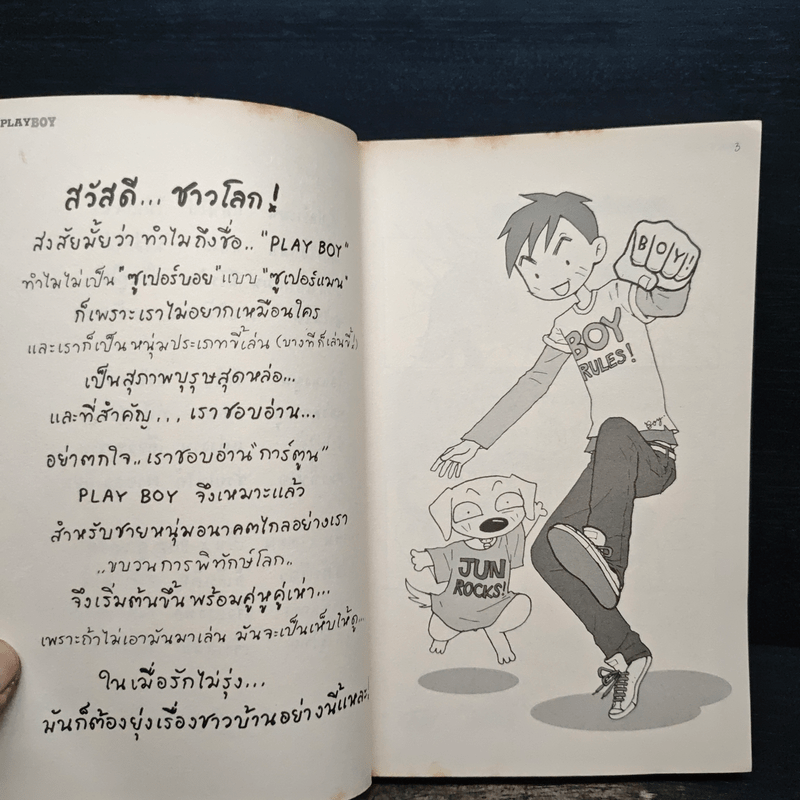 PLAYBOY
สวัสดี... ชาวโลก!
สงสัยมั้ยว่า ทำไมถึงชื่อ.. "PLAY BOY"
ทำไมไม่เป็น "ซูเปอร์บอย" แบบ "ซูเปอร์แมน"
ก็เพราะเราไม่อยากเหมือนใคร
และเราก็เป็นหนุ่มประเภทขี้เล่น (บางทีก็เล่นขี้)
เป็นสุภาพบุรุษสุดหล่อ...
และที่สำคัญ... เราชอบอ่าน...
อย่าตกใจ.. เราชอบอ่าน "การ์ตูน"
PLAY BOY จึงเหมาะแล้ว
สำหรับชายหนุ่มอนาคตไกลอย่างเรา
..ขบวนการพิทักษ์โลก..
จึงเริ่มต้นขึ้นพร้อมคู่หูคู่เห่า...
เพราะถ้าไม่เอามันมาเล่น มันจะเป็นเห็บให้ดู...
ในเมื่อรักไม่รุ่ง...
มันก็ต้องยุ่งเรื่องชาวบ้านอย่างนี้แหละ!
3
BOY!
BOY
RULES!
Boy
JUN
ROCKS!